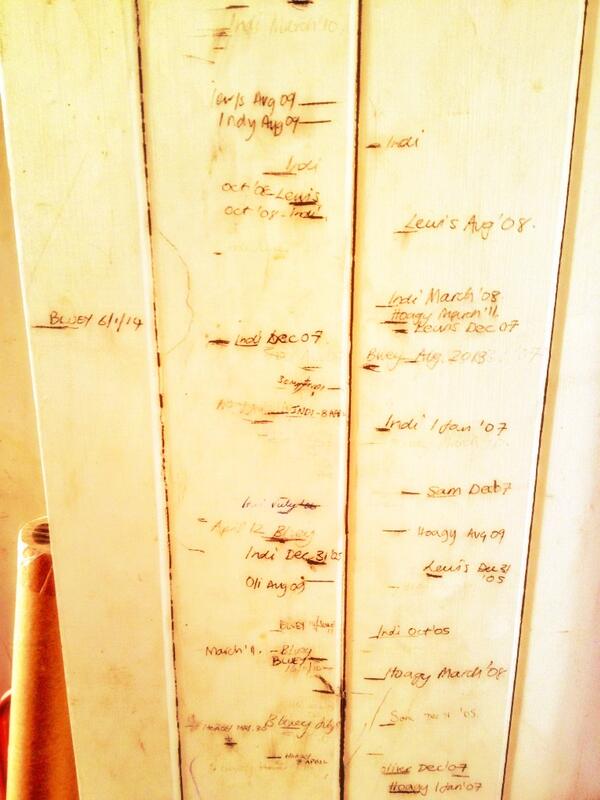 BLUEY 6/1/14
Indi March'10
Lewis Aug 09
Indy Aug 09
Indi
Oct '08 - Lewis
Oct '08 - Indi
Indi Dec 07
INDI - 8
April 12 Bluey
Indi Dec 31 '05
Oli Aug 09
BLUEY
March '11 - Bluey
BLUEY
Bluey July
HOAGY
7 APRIL
Indi
Lewis Aug '08.
Indi March '08
Hoagy March '11
Lewis Dec 07
Bluey Aug. 2013
Indi 1 Jan '07
Sam Dec 07
Hoagy Aug 09
Lewis Dec 31
'05
Indi Oct '05
Hoagy March '08
Sam '05.
Oliver Dec '07
Hoagy 1 Jan '07